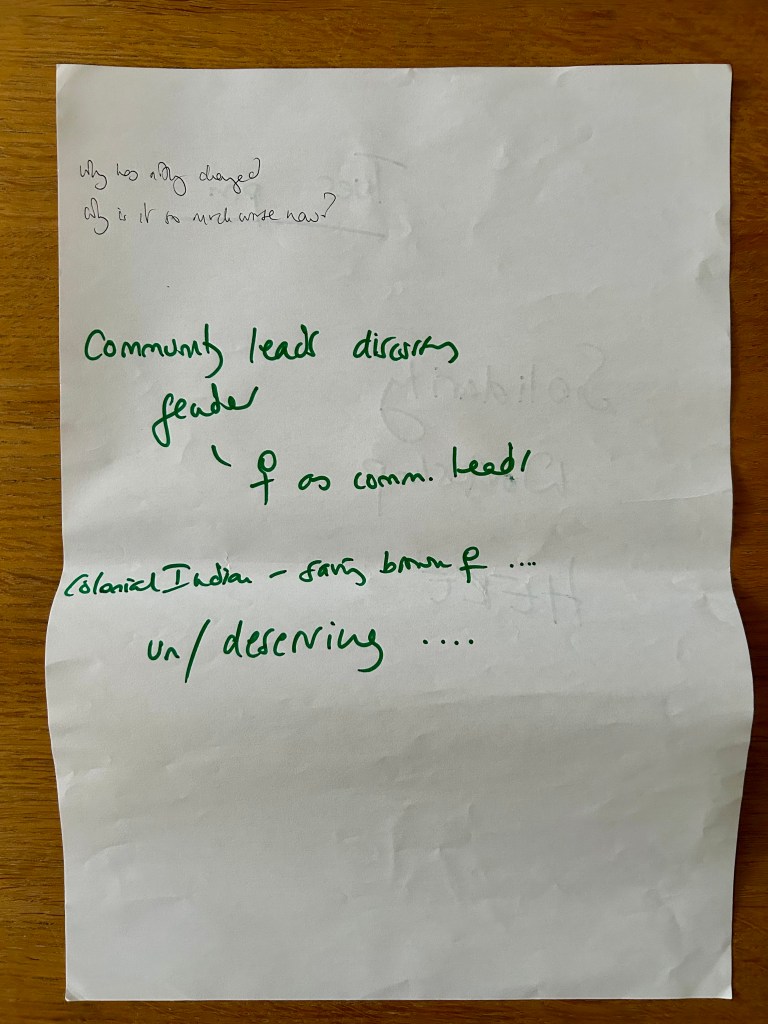 Why has nothing changed
Why is it so much worse now?
Community leads discussing
gender
\ ♀ as comm. leads
Colonial Indian – saving brown ♀ ....
un/deserving ....
Solidarity
HERE